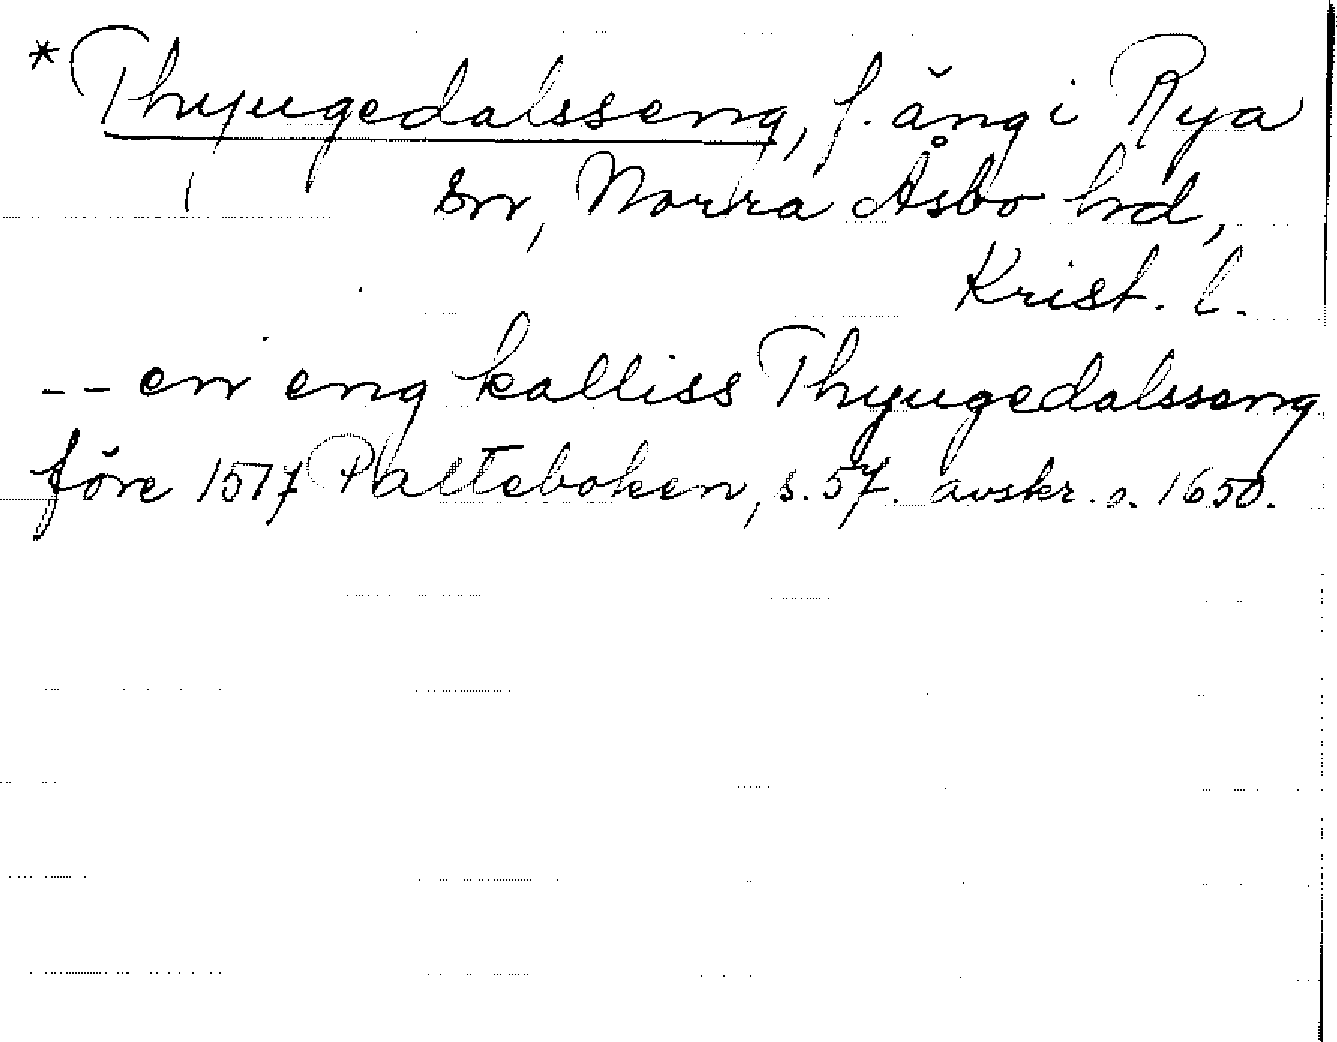 *Thyugedalsseng, f. äng i Rya
sn, Norra Åsbo hd,
Krist. l.
-- en eng kalliss Thyugedalsseng
före 1577 Palteboken, s. 57. avskr. o. 1650.